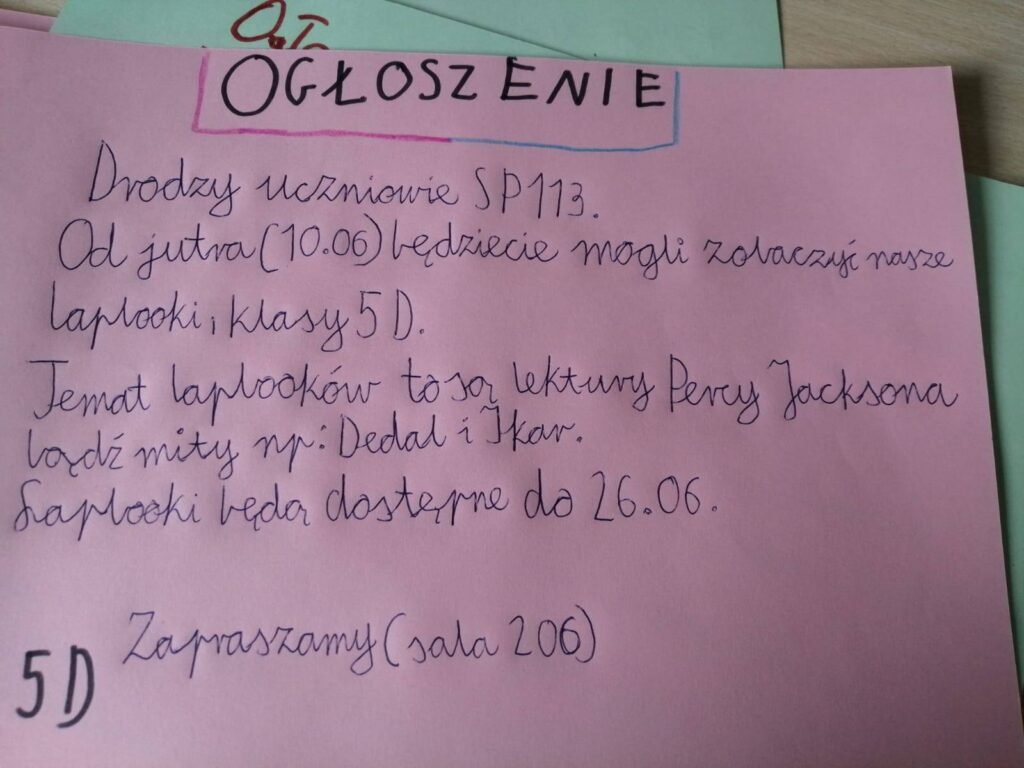 OGŁOSZENIE
Drodzy uczniowie SP113.
Od jutra (10.06) będziecie mogli zobaczyć nasze
lapbooki, klasy 5D.
Temat lapbooków to są lektury Percy Jacksona
bądź mity np: Dedal i Ikar.
Lapbooki będą dostępne do 26.06.
Zapraszamy (sala 206)
5D